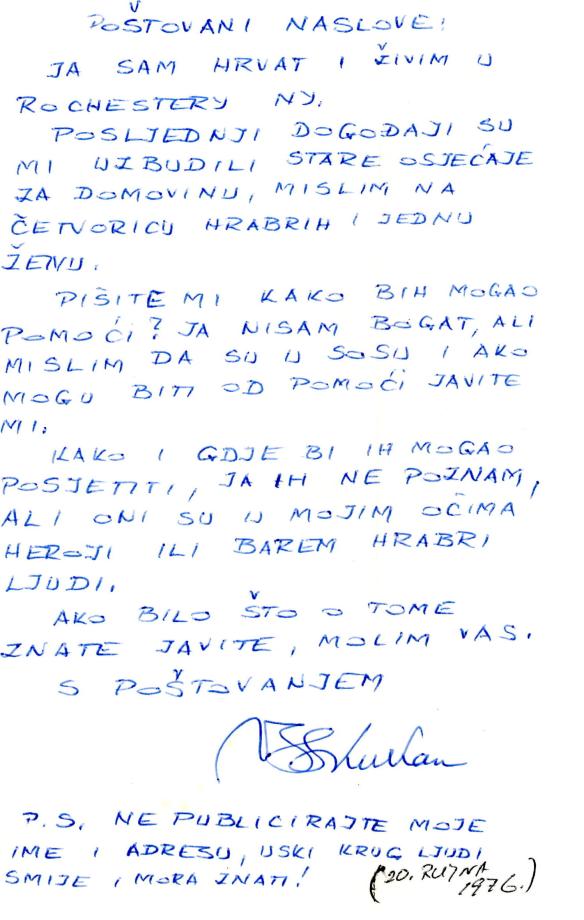 POŠTOVANI NASLOVE!
JA SAM HRVAT I ŽIVIM U
ROCHESTERU NY.
POSLJEDNJI DOGOĐAJI SU
MI UZBUDILI STARE OSJEĆAJE
ZA DOMOVINU, MISLIM NA
ČETVORICU HRABRIH I JEDNU
ŽENU.
PIŠITE MI KAKO BIH MOGAO
POMOĆI? JA NISAM BOGAT, ALI
MISLIM DA SU U SOSU I AKO
MOGU BITI OD POMOĆI JAVITE
MI.
KAKO I GDJE BI IH MOGAO
POSJETITI, JA IH NE POZNAM,
ALI ONI SU U MOJIM OČIMA
HEROJI ILI BAREM HRABRI
LJUDI.
AKO BILO ŠTO O TOME
ZNATE JAVITE, MOLIM VAS.
S POŠTOVANJEM
P.S. NE PUBLICIRAJTE MOJE
IME I ADRESU, USKI KRUG LJUDI
SMIJE I MORA ZNATI! (20. RUJNA
1976.)